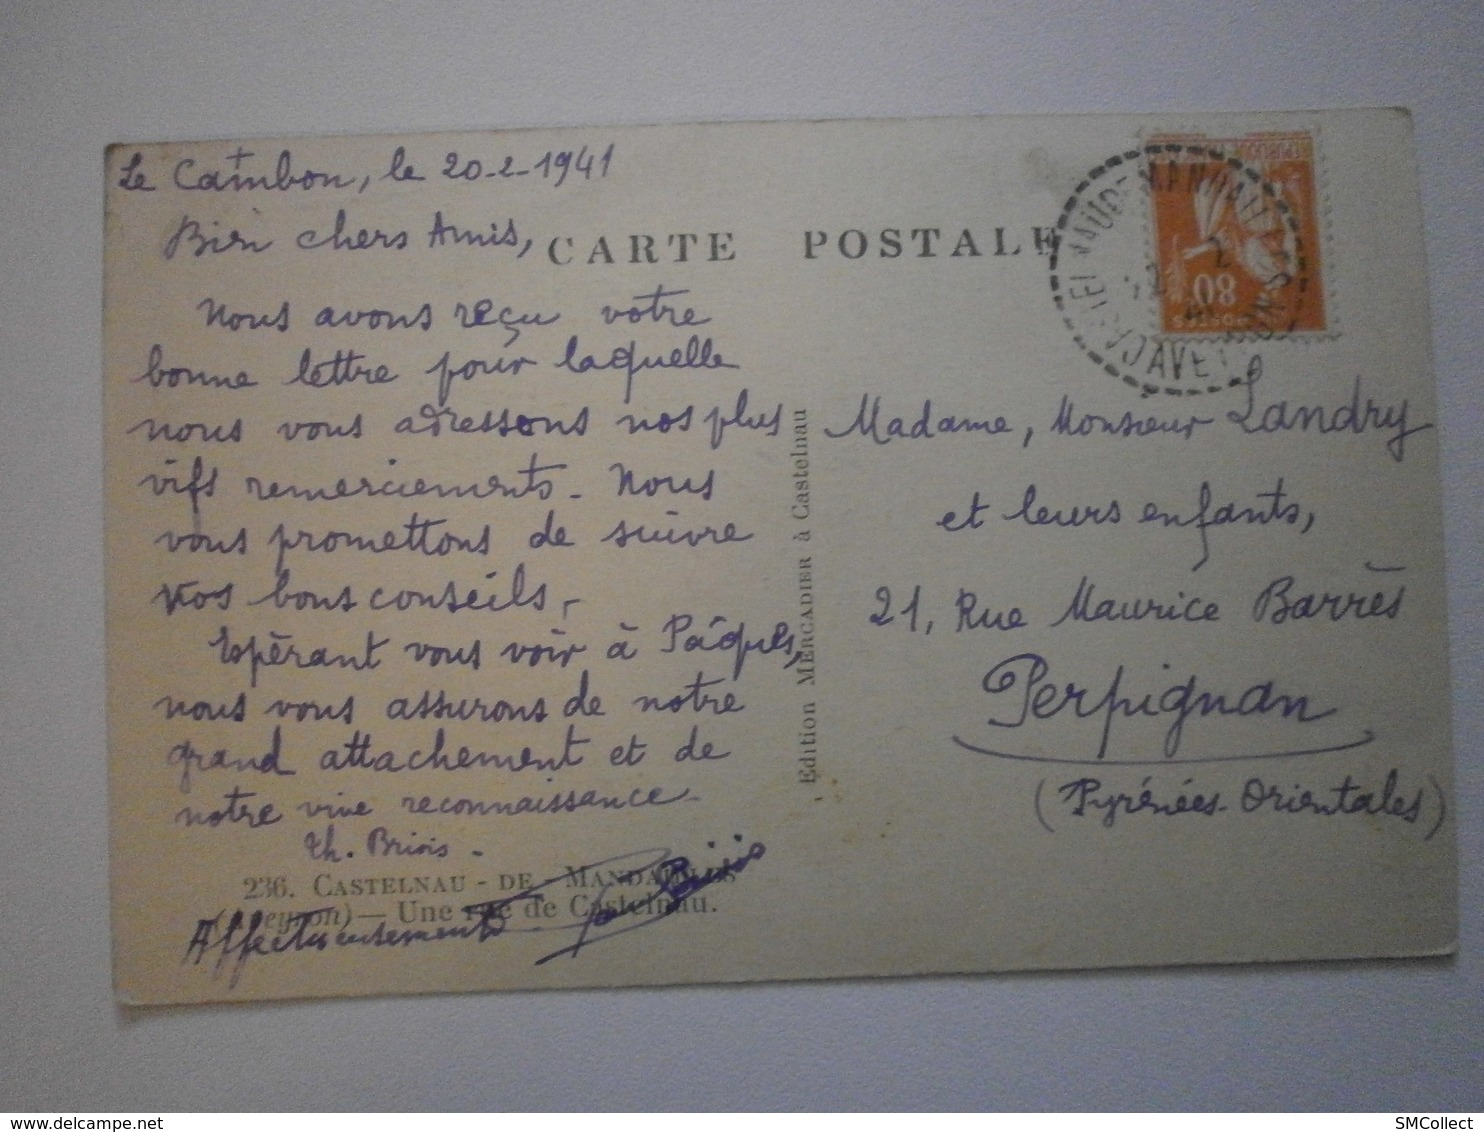 Le Cambon, le 20-2-1941
Bien chers Amis,
CARTE POSTALE
Nous avons reçu votre
bonne lettre pour laquelle
nous vous adressons nos plus
vifs remerciements. Nous
vous promettons de suivre
vos bons conseils.
Espèrant vous voir à Pâques,
nous vous assurons de notre
grand attachement et de
notre vive reconnaissance.
Th. Briois.
236. CASTELNAU - DE - MANDAILLES
Une rue de Castelnau.
Affectueusement
Briois
Edition MERCADIER à Castelnau
80
POSTES
CASTELNAU DE MANDAILLES
AVEYRON
Madame, Monsieur Landry
et leurs enfants,
21, Rue Maurice Barrès
Perpignan
(Pyrénées-Orientales)
SMCollect